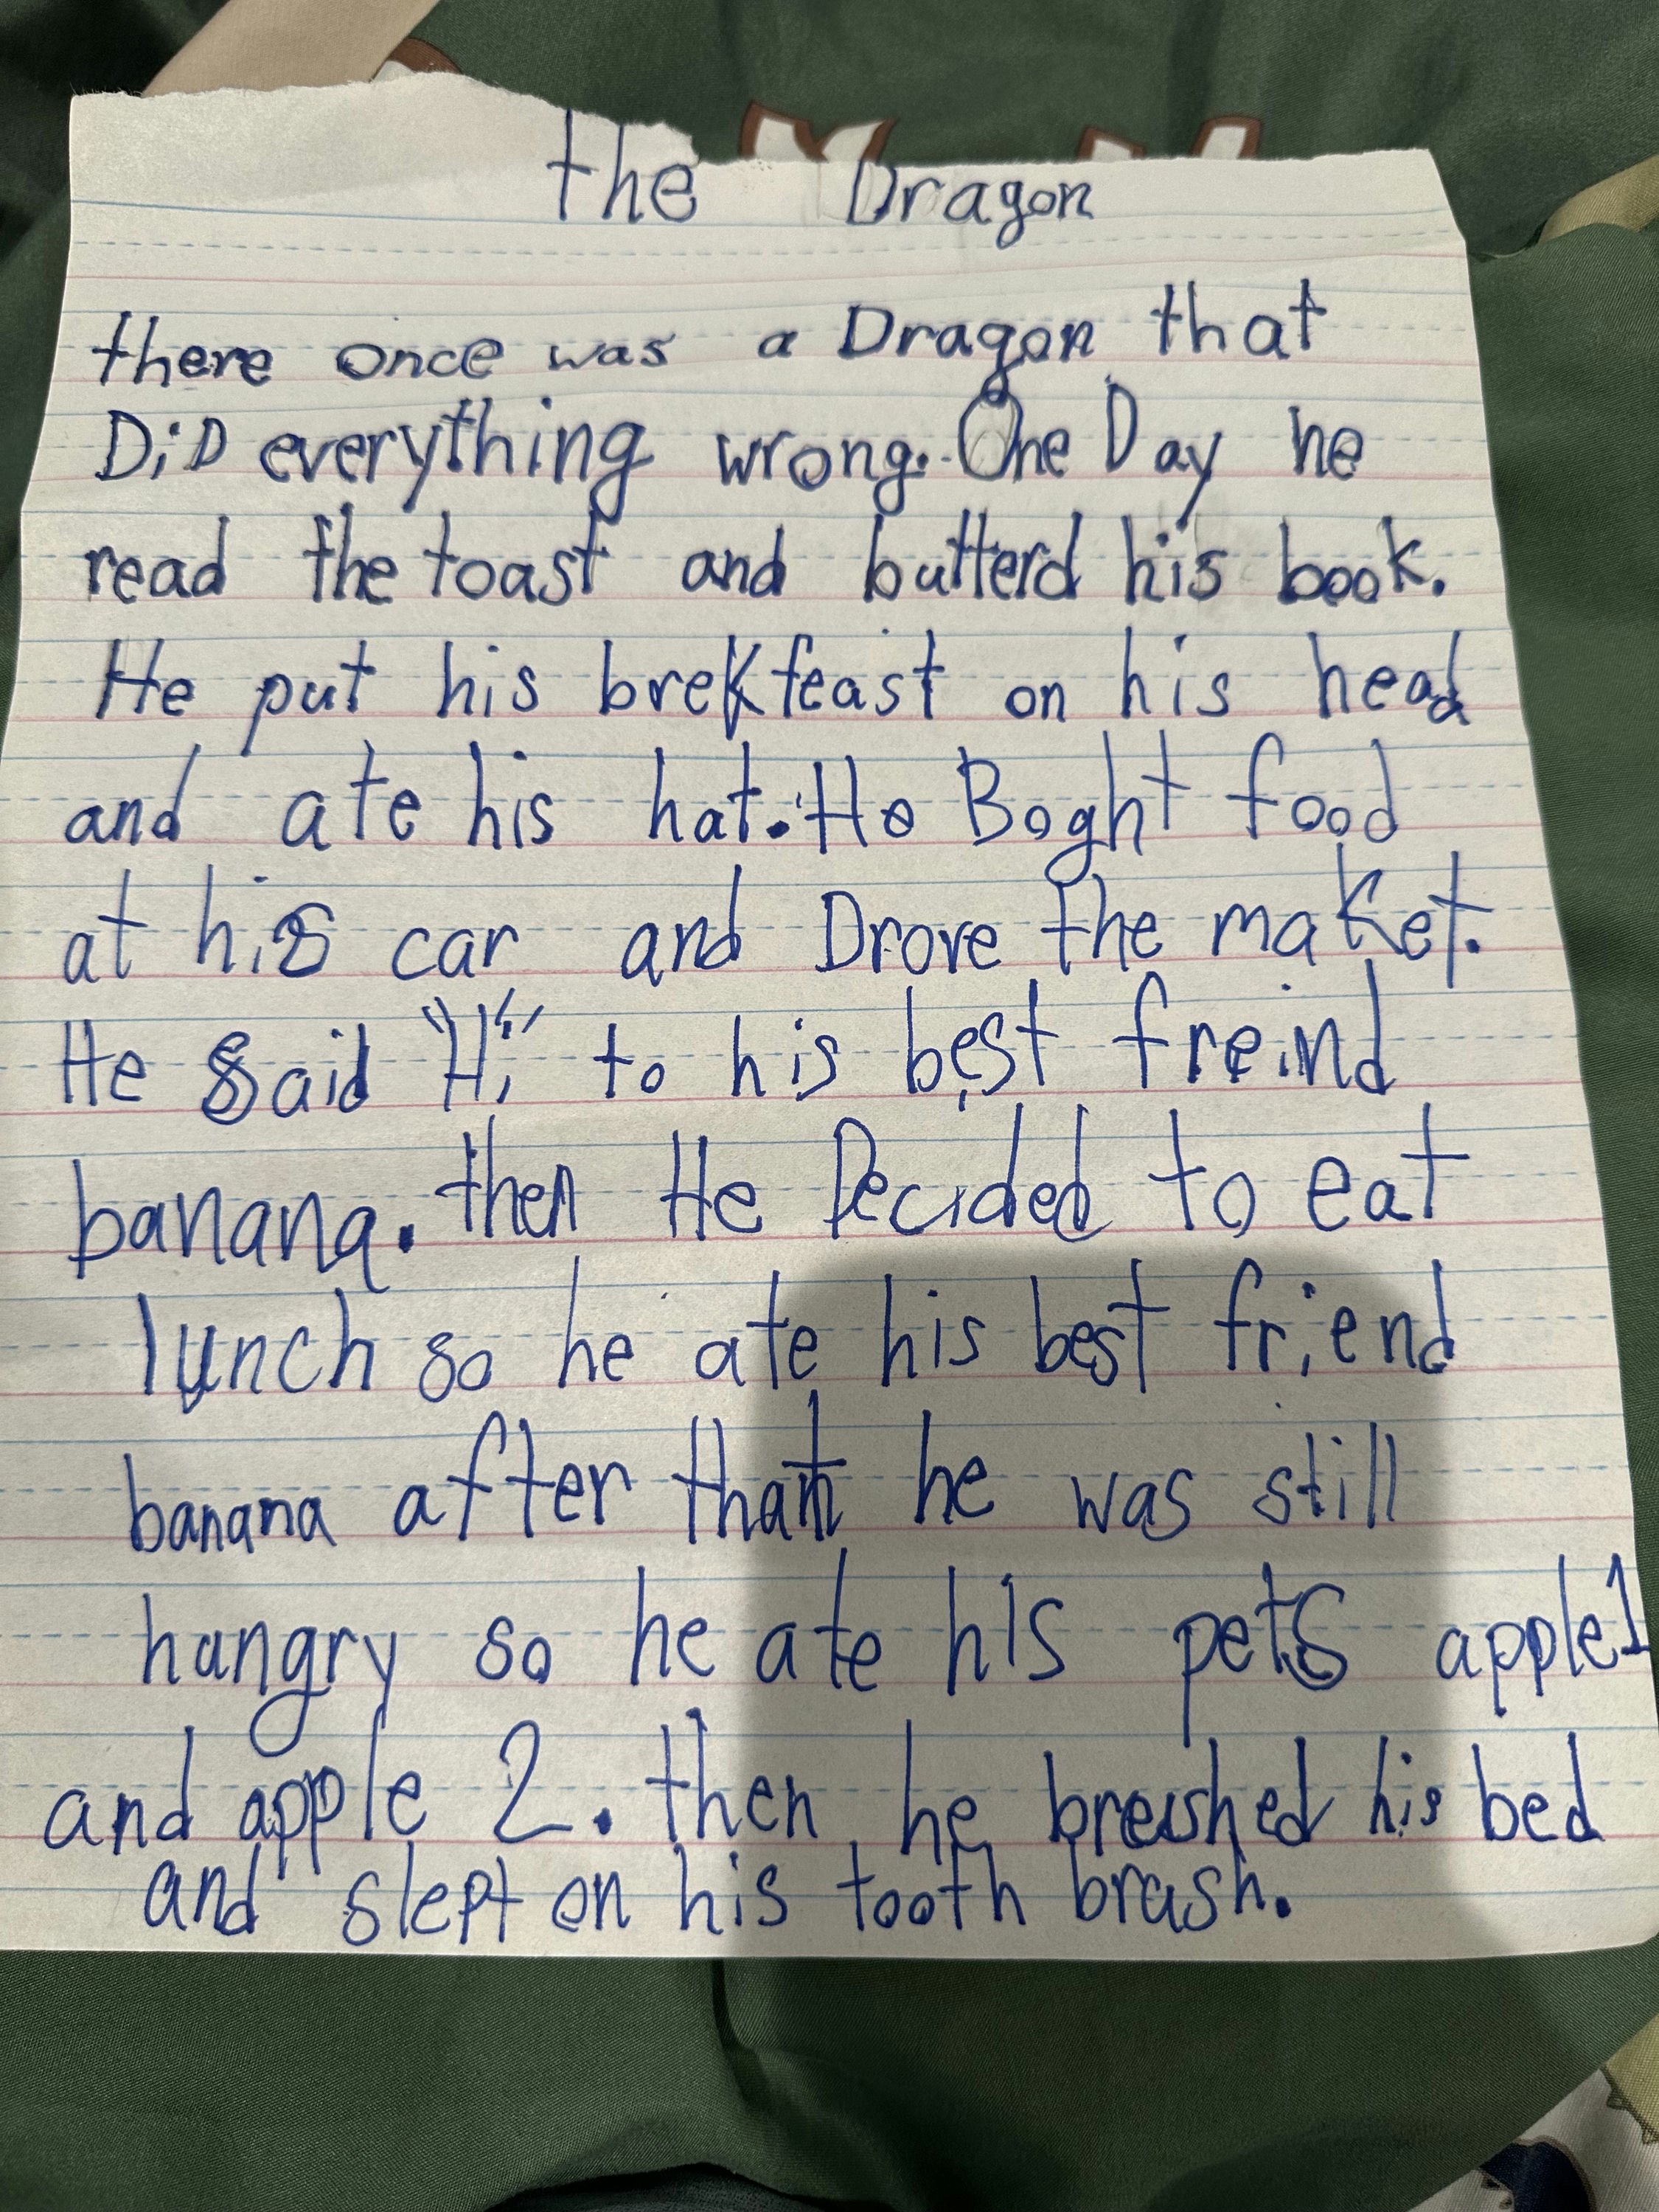 the Dragon
there once was a Dragon that
DiD everything wrong. One Day he
read the toast and butterd his book.
He put his brekfeast on his head
and ate his hat. He Boght food
at his car and Drove the maket.
He said "Hi" to his best freind
banana. then He Decided to eat
lunch so he ate his best friend
banana after that he was still
hungry so he ate his pets apple 1
and apple 2. then he breushed his bed
and slept on his tooth brush.